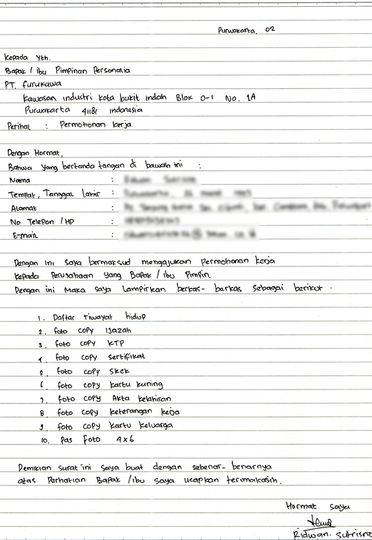 Purwakarta, 02
Kepada Yth.
Bapak / Ibu Pimpinan Personalia
PT. Furukawa
Kawasan Industri Kota bukit Indah Blok D-1 No. 1A
Purwakarta 41181 Indonesia
Perihal : Permohonan Kerja
Dengan Hormat,
Bahwa Yang bertanda tangan di bawah ini :
Nama :
Tempat, Tanggal Lahir :
Alamat :
No Telepon / HP :
E-mail :
Dengan ini saya bermaksud mengajukan Permohonan Kerja
Kepada Perusahaan Yang Bapak / Ibu Pimpin.
Dengan ini Maka Saya Lampirkan berkas-barkas sebagai berikut.
1. Daftar riwayat hidup
2. foto copy Ijazah
3. foto copy KTP
4. foto copy sertifikat
5. foto copy Skck
6. foto copy kartu kuning
7. foto copy Akta kelahiran
8. foto copy keterangan kerja
9. foto copy kartu keluarga
10. Pas Foto 4x6
Demikian surat ini saya buat dengan sebenar-benarnya
atas Perhatian Bapak / Ibu saya ucapkan terimakasih.
Hormat Saya
Ridwan Sutrisno